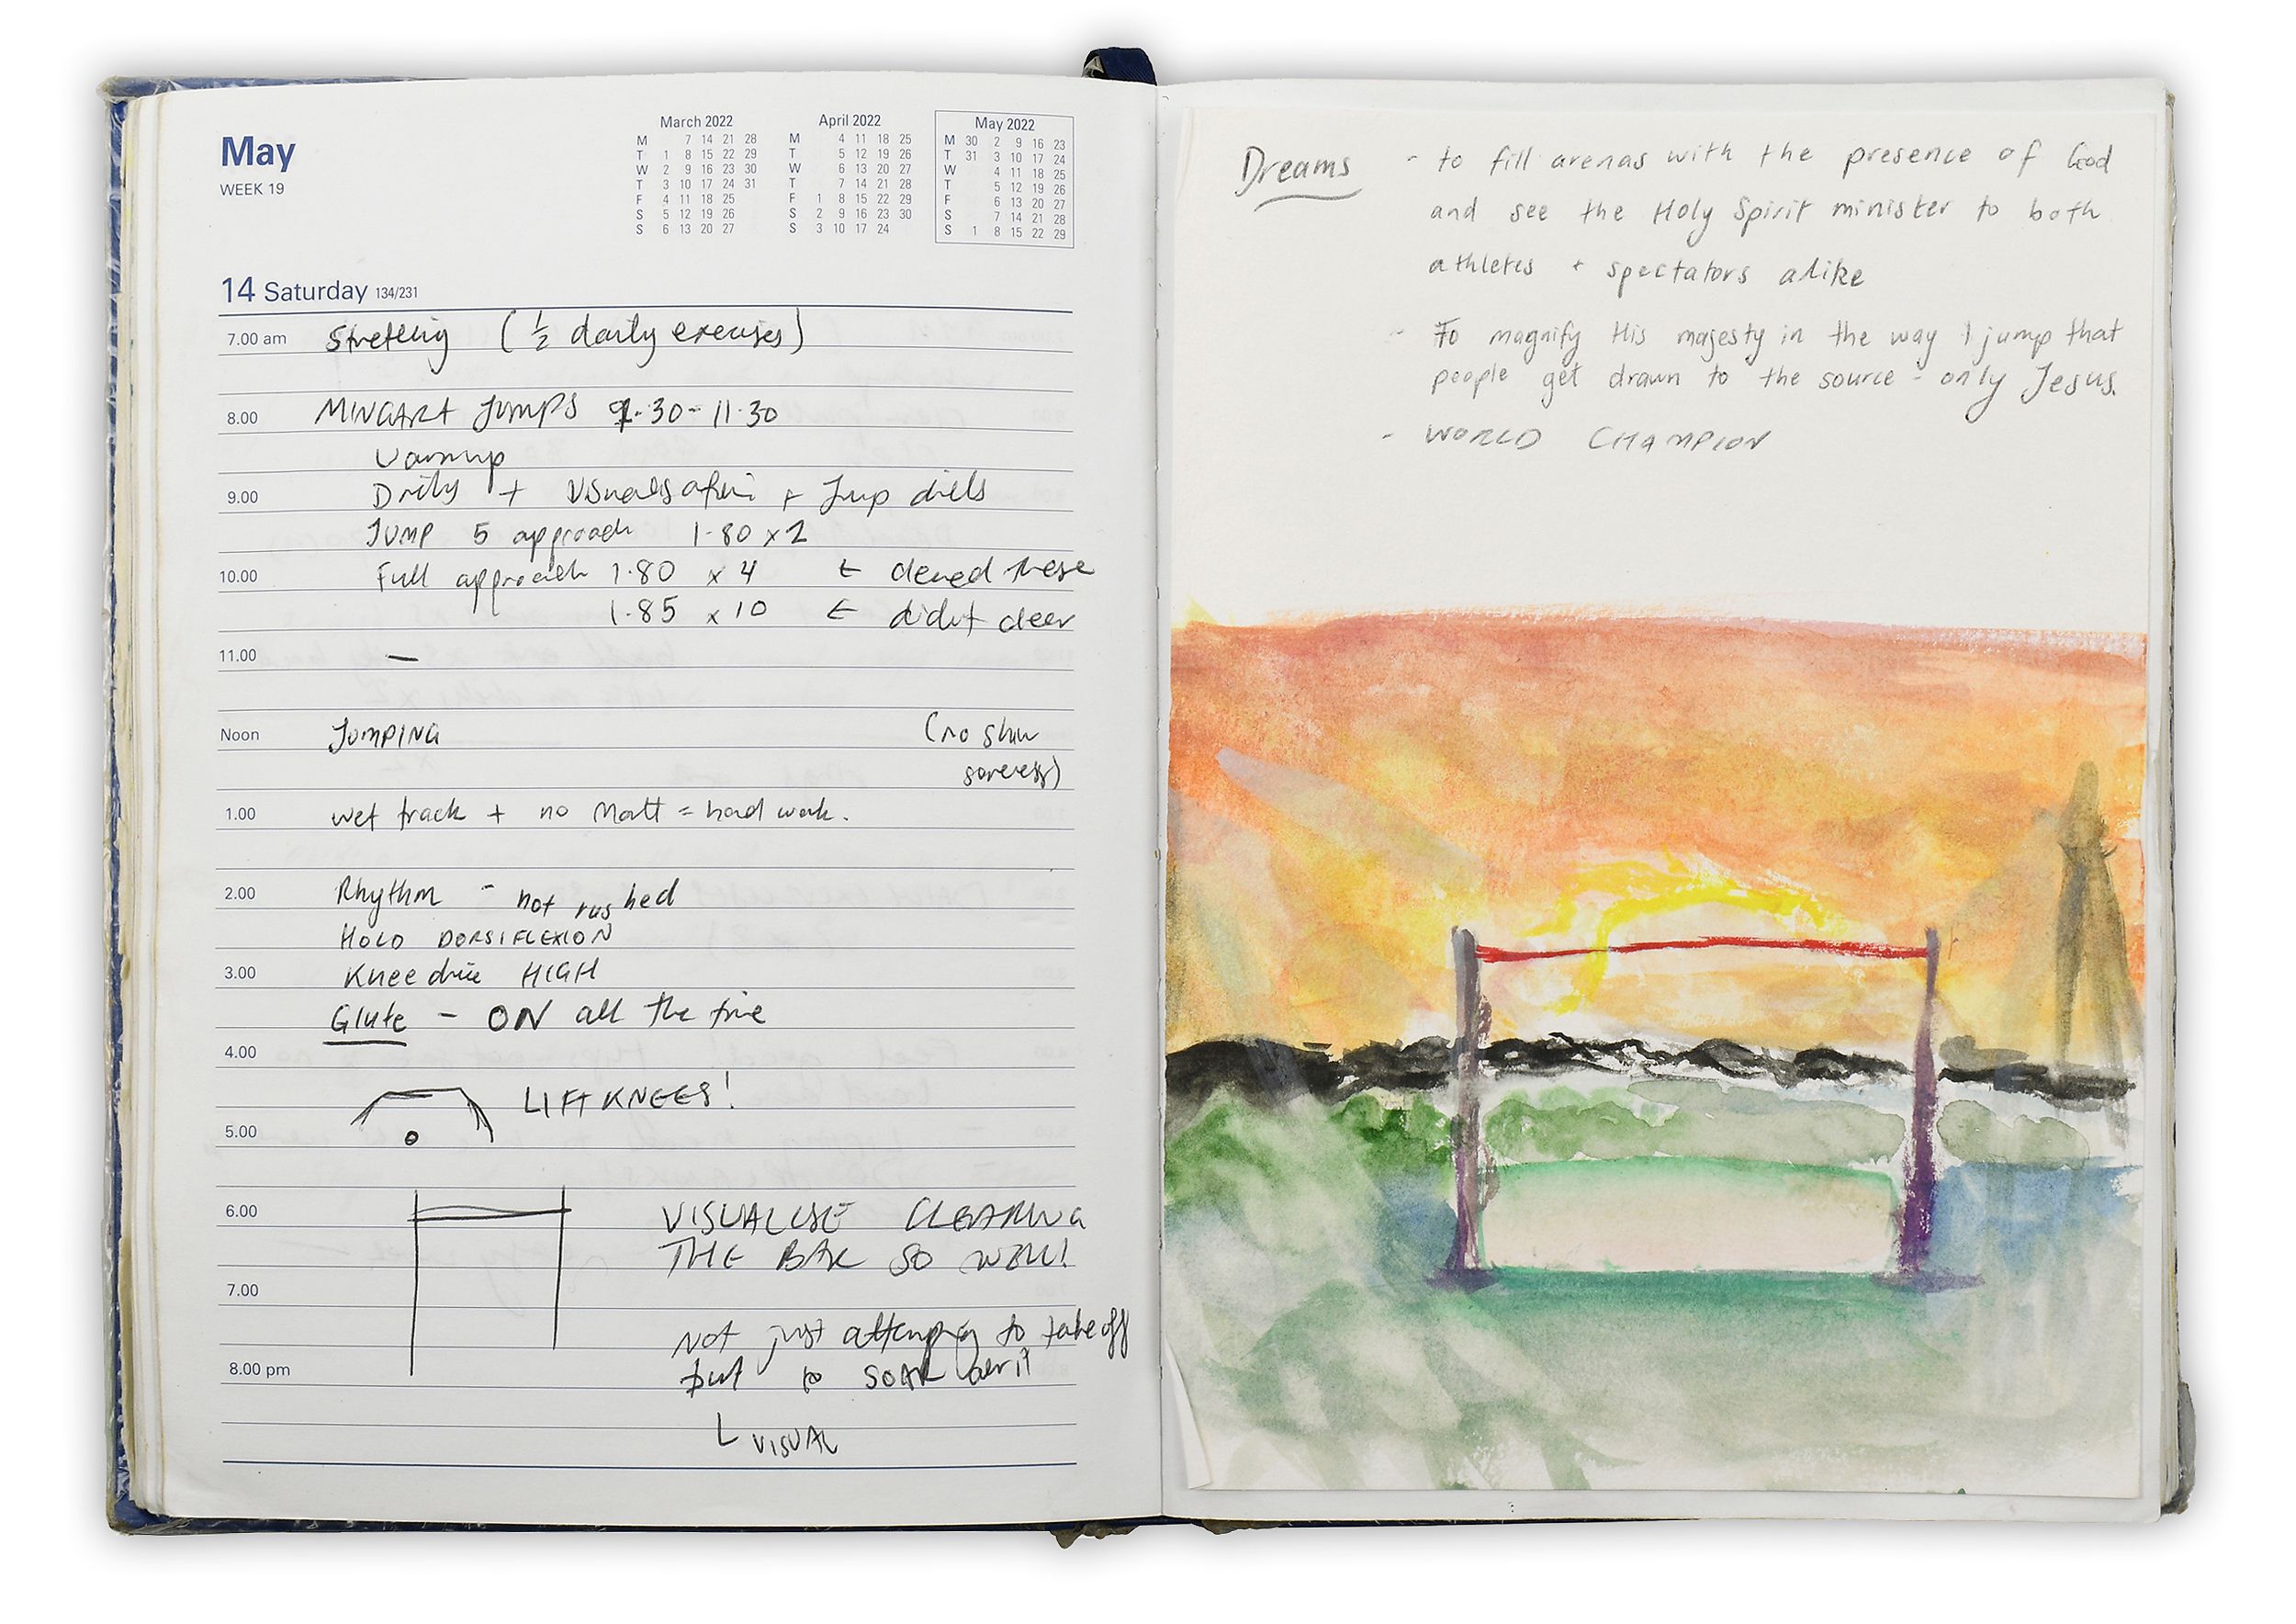 May
WEEK 19
March 2022
M 7 14 21 28
T 1 8 15 22 29
W 2 9 16 23 30
T 3 10 17 24 31
F 4 11 18 25
S 5 12 19 26
S 6 13 20 27
April 2022
M 4 11 18 25
T 5 12 19 26
W 6 13 20 27
T 7 14 21 28
F 1 8 15 22 29
S 2 9 16 23 30
S 3 10 17 24
May 2022
M 30 2 9 16 23
T 31 3 10 17 24
W 4 11 18 25
T 5 12 19 26
F 6 13 20 27
S 7 14 21 28
S 1 8 15 22 29
14 Saturday 134/231
7.00 am Stretching (½ daily exercises)
8.00 MINGARA JUMPS 9.30- 11.30
Warmup
9.00 Drills + Visualisation + Jump drills
JUMP 5 approach 1.80 x 2
10.00 Full approach 1.80 x 4 ← cleared these
1.85 x 10 ← didnt clear
11.00 —
Noon JUMPING (no shin
soreness)
1.00 wet track + no Matt = hard work.
2.00 Rhythm - not rushed
HOLD DORSIFLEXION
3.00 Knee drive HIGH
Glute - ON all the time
4.00
LIFT KNEES!
5.00
6.00 VISUALISE CLEARING
THE BAR SO WELL!
7.00
Not just attempting to take off
8.00 pm but to SOAR over it
L VISUAL
Dreams - to fill arenas with the presence of God
and see the Holy Spirit minister to both
athletes + spectators alike
- To magnify His majesty in the way I jump that
people get drawn to the source - only Jesus.
- WORLD CHAMPION